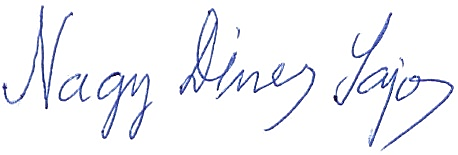 Nagy Dines Lajos